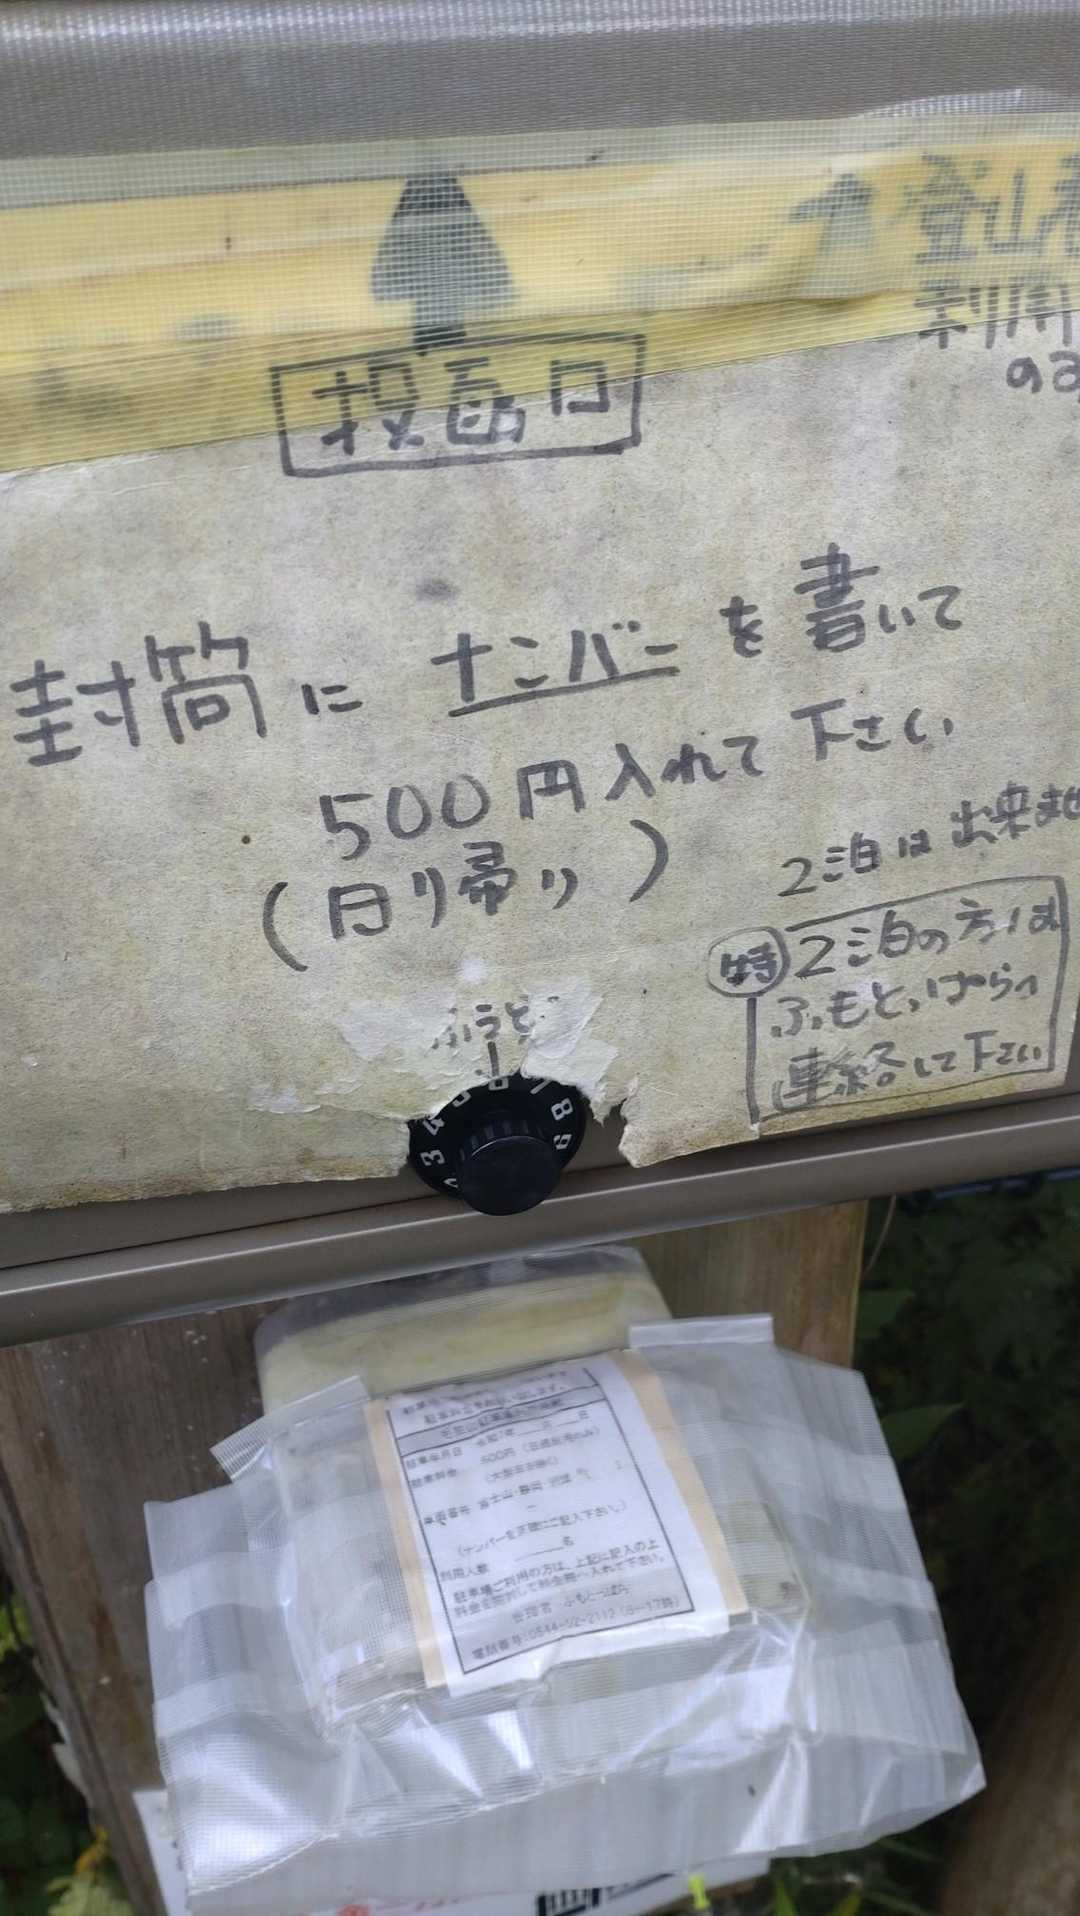 登山
利用
投函口
封筒に ナンバーを書いて
500円入れて下さい
(日り帰り)
2泊は出来ませ
特 2泊の方は
ふもとっぱらへ
連絡して下さい
ふうと
3 4 6 7 8 9
駐車年月日 令和7年 月 日
駐車料金 500円 (普通乗用のみ)
(大型車お断り)
車両番号 富士山・静岡
(ナンバーを正確にご記入下さい。)
利用人数 名
駐車場ご利用の方は、上記に記入の上
料金を同封して料金箱へ入れて下さい。
管理者 ふもとっぱら
電話番号:0544-52-2112 (8-17時)